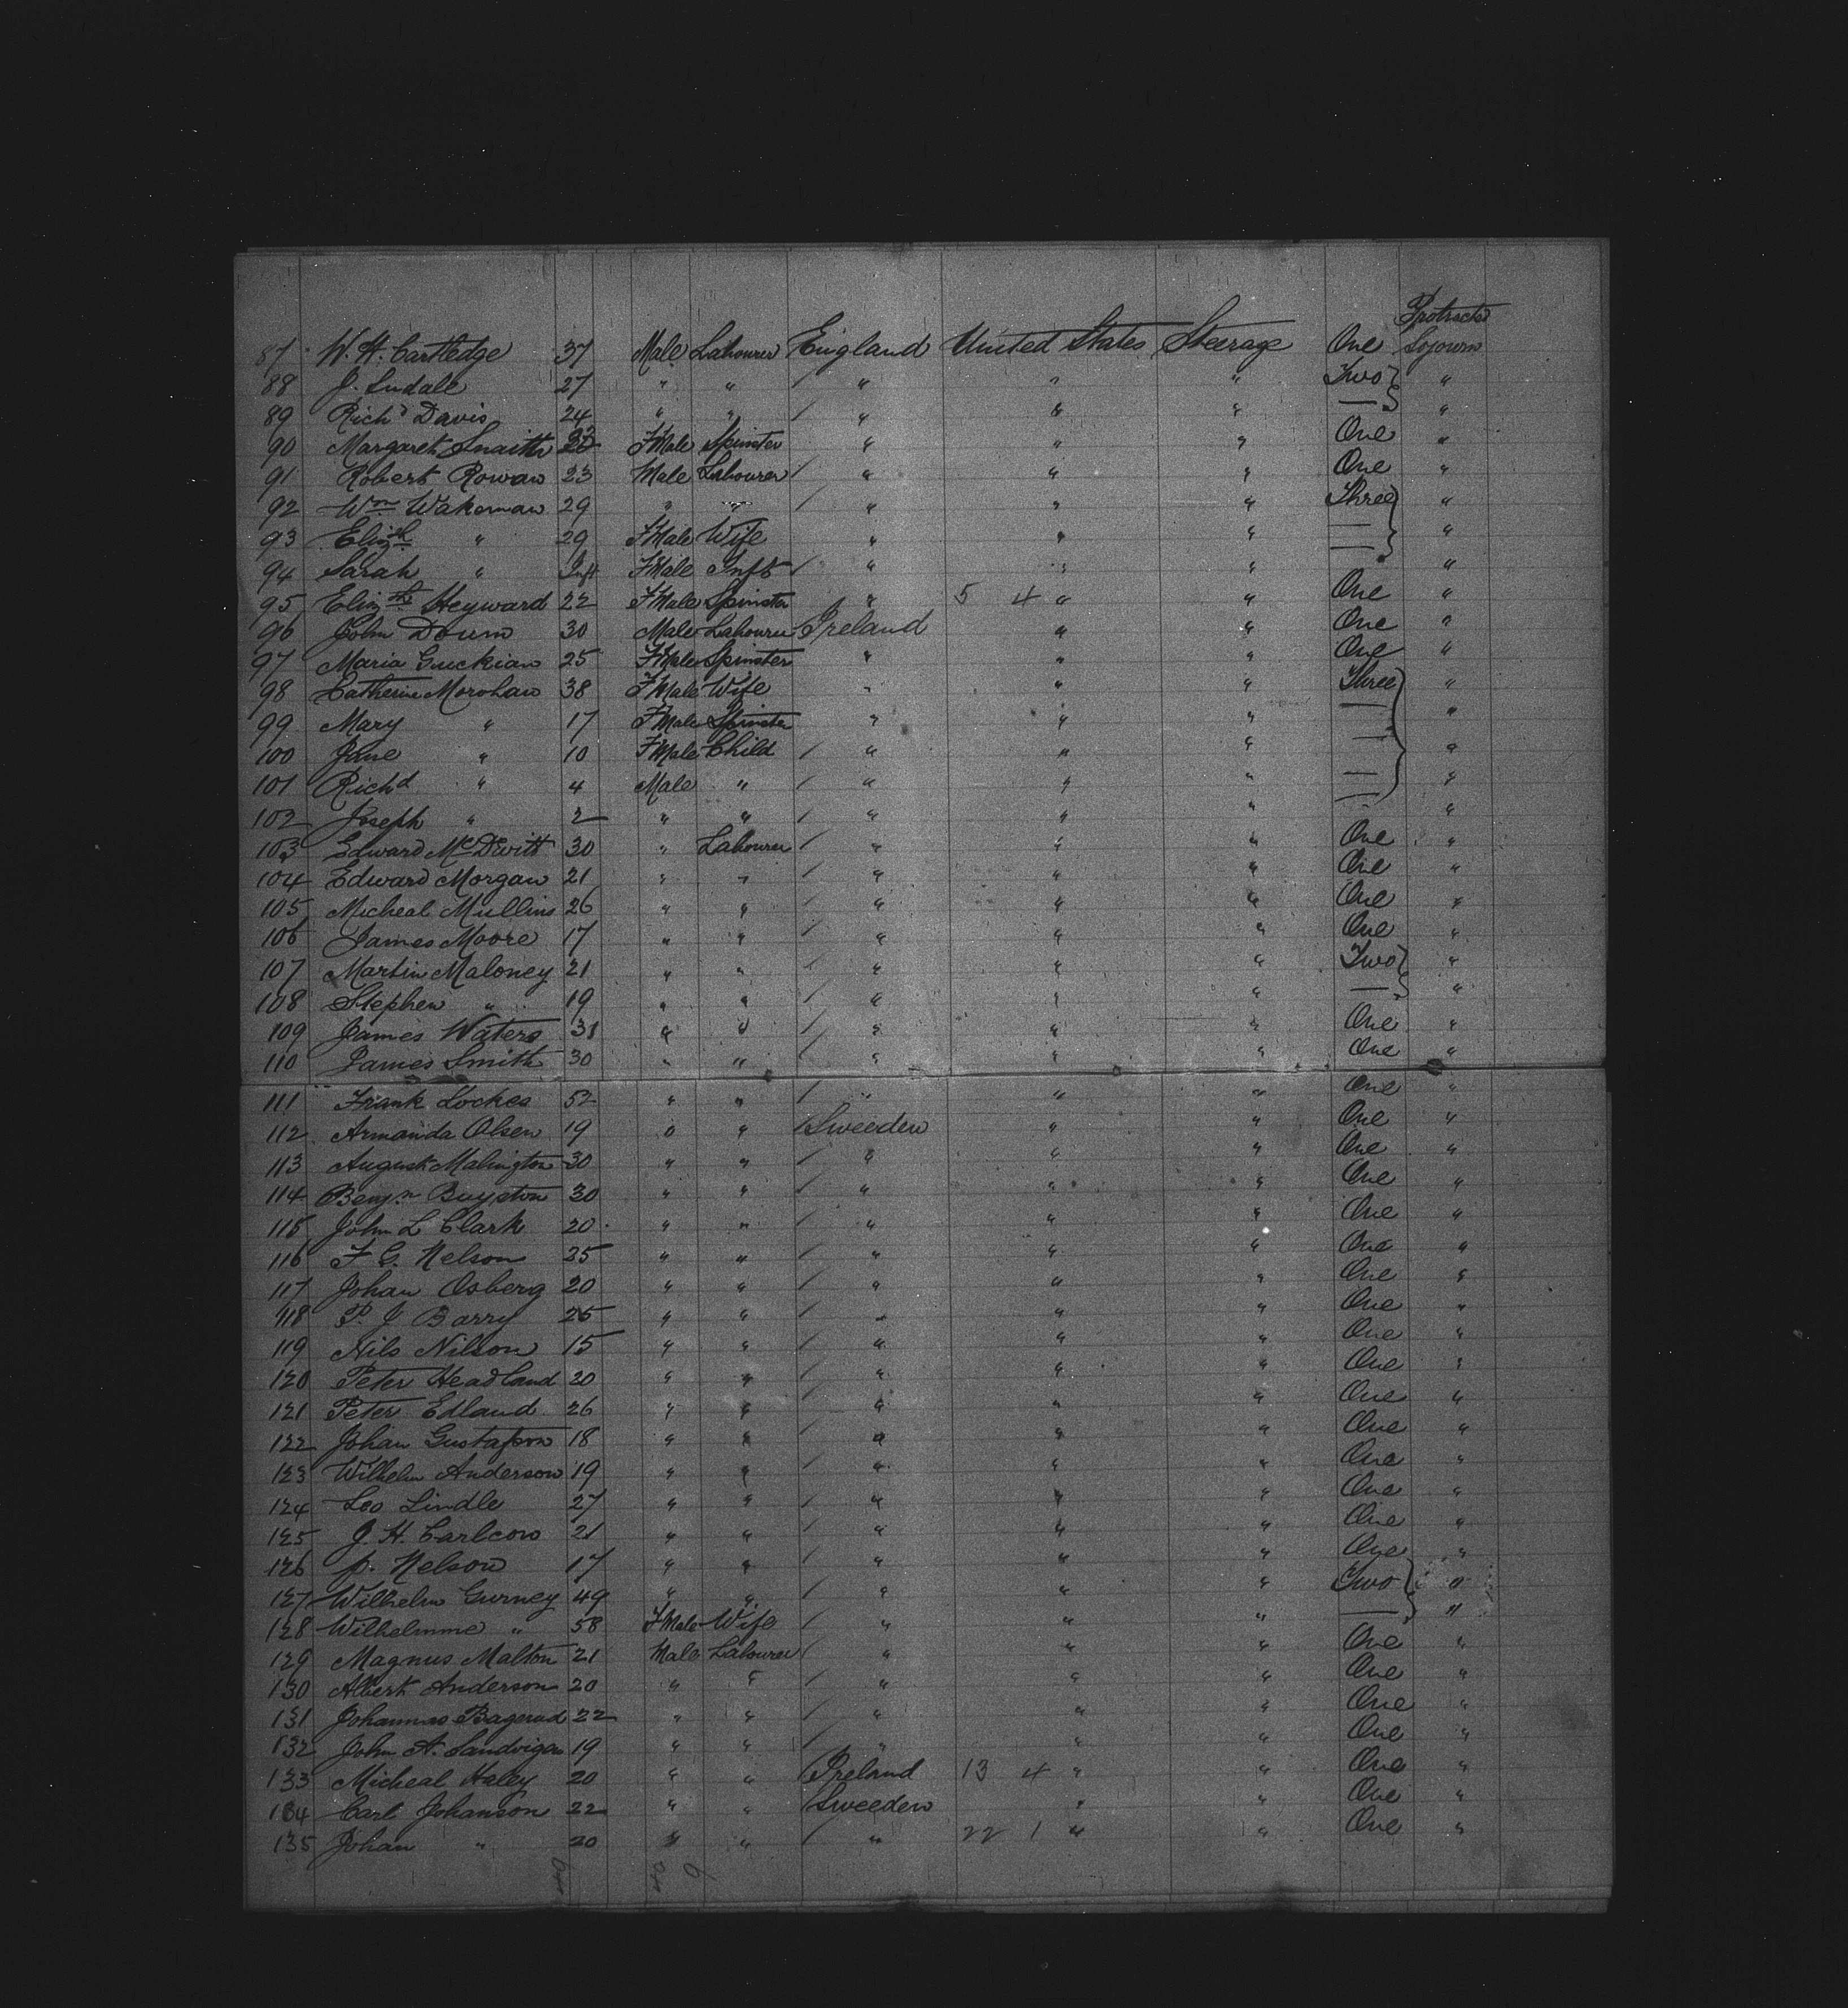 Protracted
87 W. H. Cartledge 37 Male Labourer England United States Steerage One Sojourn
88 J. 27 " " " " " Two "
89 Richd Davis 24 " " " " " — "
90 Margaret Snaith FMale Spinster " " " One "
91 Robert Rowan 23 Male Labourer " " " One "
92 Wm Wakeman 29 " " " " " Three "
93 Elizth " 29 FMale Wife " " " — "
94 Sarah " Inft FMale Inft " " " — "
95 Elizth Heyward 22 FMale Spinster " 5 4 " " One "
96 John 30 Male Labourer Ireland " " One "
97 Maria Guckian 25 FMale Spinster " " " One "
98 Catherine Morohan 38 FMale Wife " " " Three "
99 Mary " 17 FMale Spinster " " " — "
100 Jane " 10 FMale Child " " " — "
101 Richd " 4 Male " " " " — "
102 Joseph " 2 " " " " " — "
103 Edward McDevitt 30 " Labourer " " " One "
104 Edward Morgan 21 " " " " " One "
105 Micheal Mullins 26 " " " " " One "
106 James Moore 17 " " " " " One "
107 Martin Maloney 21 " " " " " Two "
108 Stephen " 19 " " " " " — "
109 James Waters 31 " " " " " One "
110 James Smith 30 " " " " " One "
111 Frank Lockes 52 " " " " " One "
112 Armanda Olsen 19 " " Sweeden " " One "
113 August Malington 30 " " " " " One "
114 Benjn Buyston 30 " " " " " One "
115 John L Clark 20 " " " " " One "
116 F G. Nelson 25 " " " " " One "
117 Johan Osberg 20 " " " " " One "
118 P. J Barry 25 " " " " " One "
119 Nils Nilson 15 " " " " " One "
120 Peter Headland 20 " " " " " One "
121 Peter Edland 26 " " " " " One "
122 Johan Gustafson 18 " " " " " One "
123 Wilhelm Anderson 19 " " " " " One "
124 Leo Lindle 27 " " " " " One "
125 J. H. Carlcon 21 " " " " " One "
126 p. Nelson 17 " " " " " One "
127 Wilhelm Gurney 49 " " " " " Two "
128 Wilhelmme " 58 FMale Wife " " " — "
129 Magnus Malton 21 Male Labourer " " " One "
130 Albert Anderson 20 " " " " " One "
131 Johannas 22 " " " " " One "
132 John A. Sandvigen 19 " " " " " One "
133 Micheal Haley 20 " " Ireland 13 4 " " One "
134 Carl Johanson 22 " " Sweeden " " One "
135 Johan " 20 " " " 22 1 " " One "